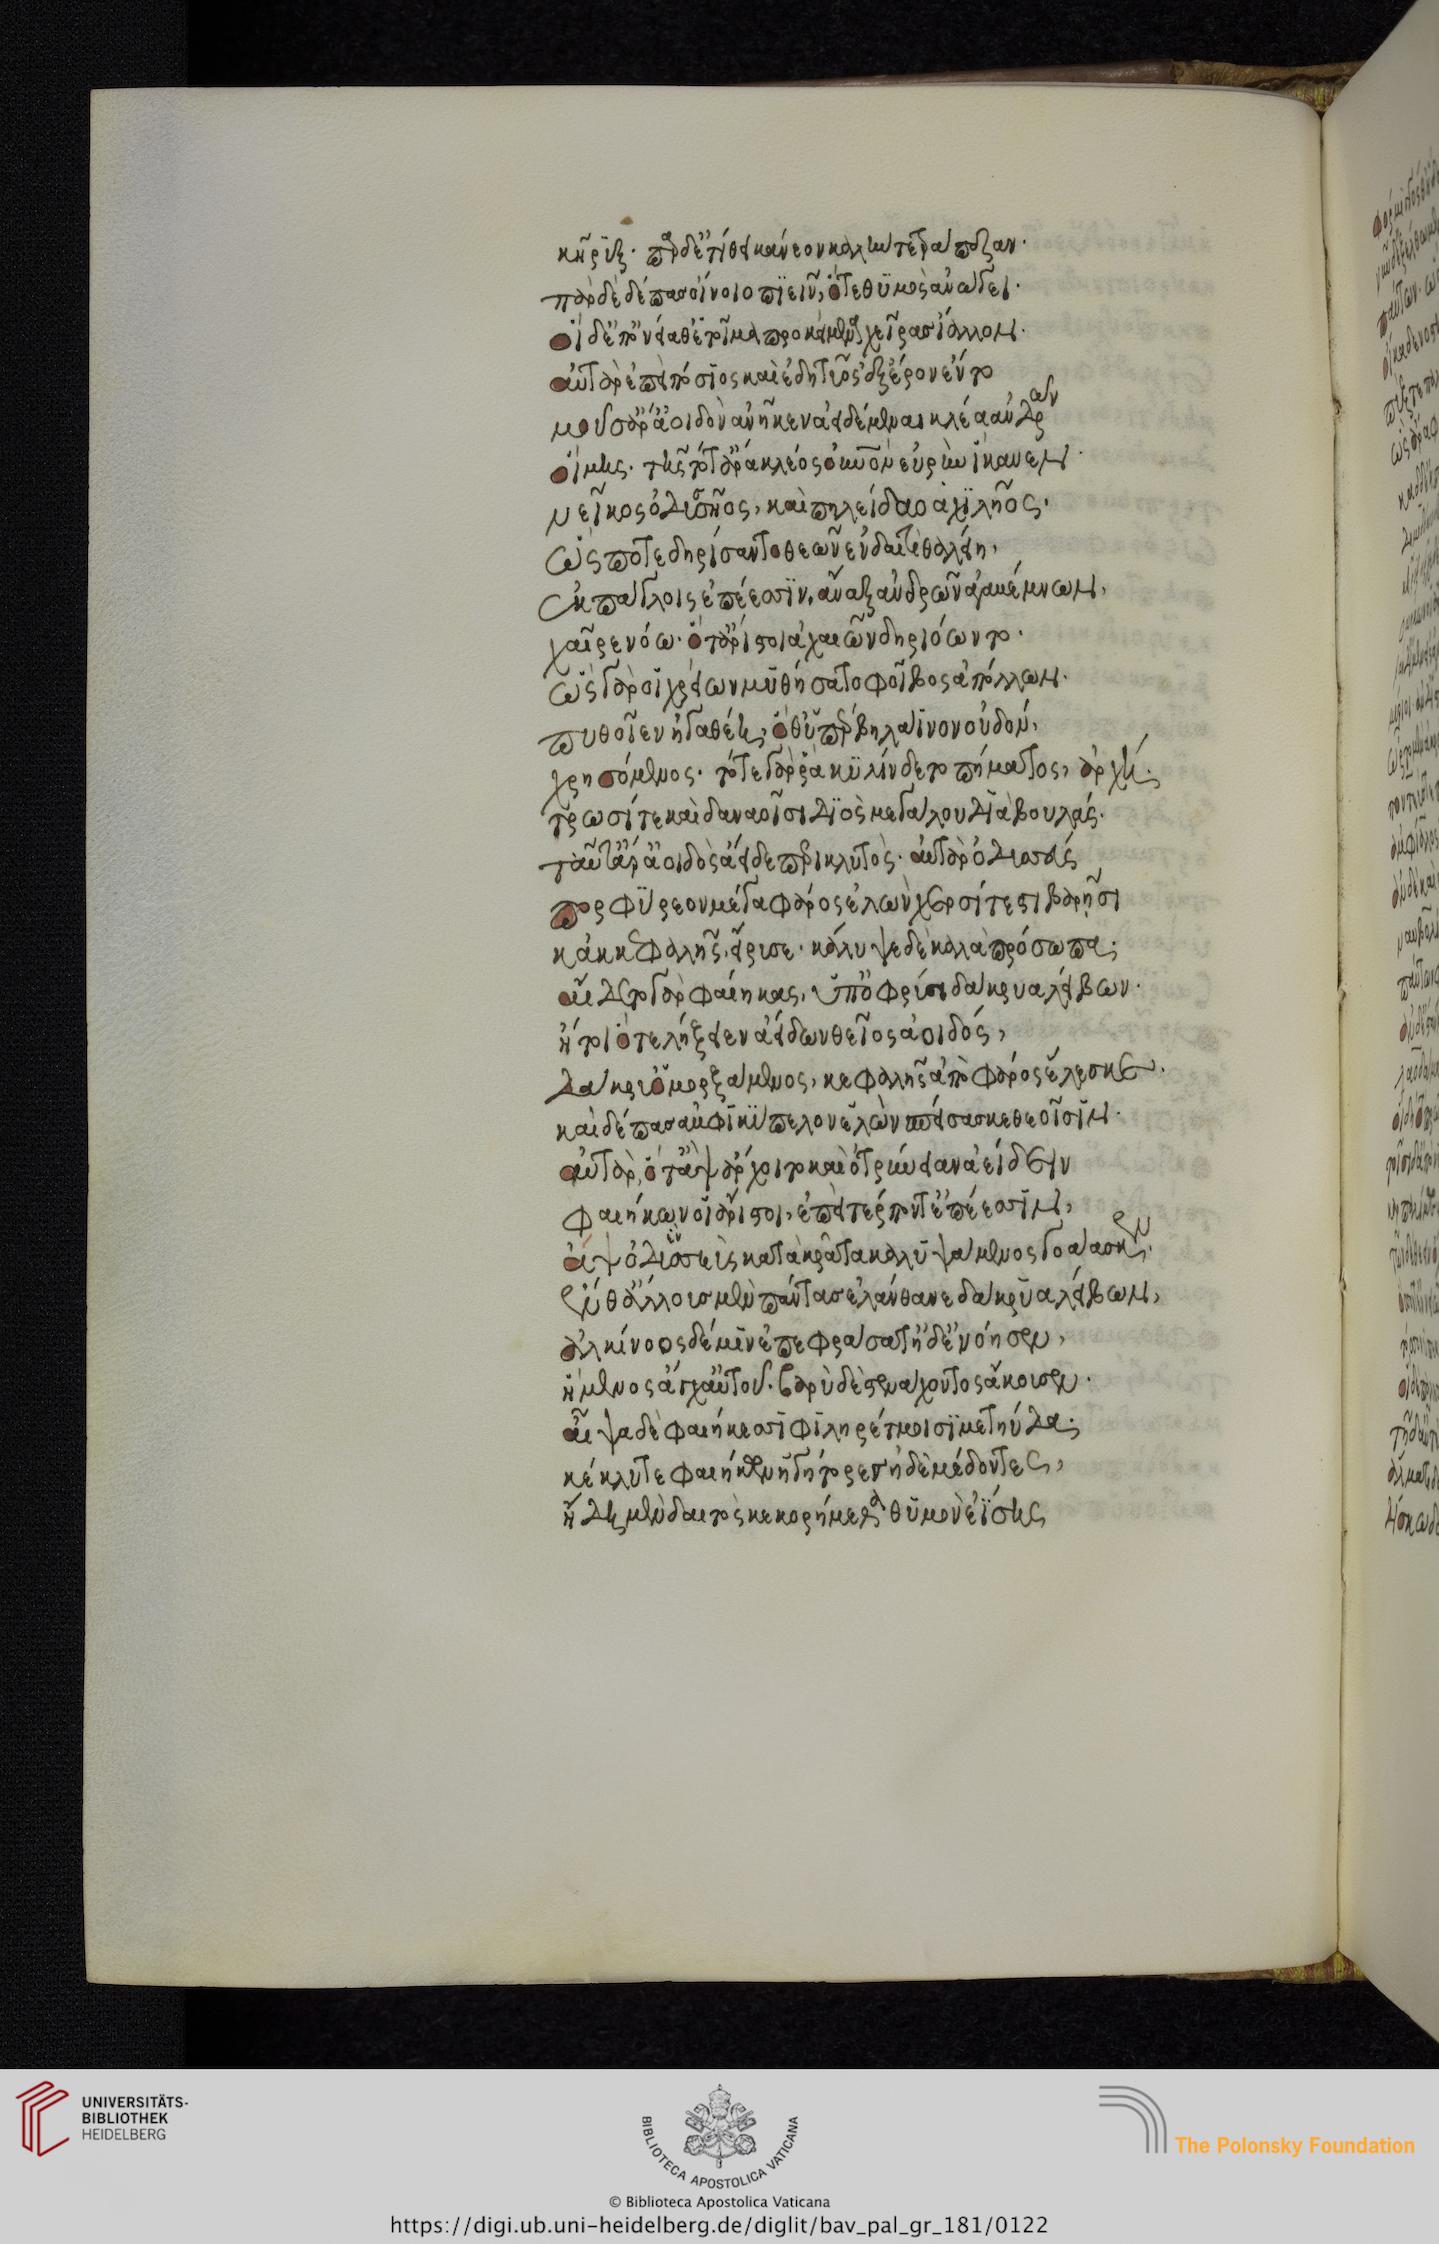 κῆρυξ· πὰρ δ' ἐτίθει κάνεον καλήν τε τράπεζαν·
πὰρ δὲ δέπας οἴνοιο πιεῖν, ὅτε θυμὸς ἀνώγει·
οἱ δ' ἐπ' ὀνείαθ' ἑτοῖμα προκείμενα χεῖρας ἴαλλον·
αὐτὰρ ἐπεὶ πόσιος καὶ ἐδητύος ἐξ ἔρον ἕντο
μοῦσ' ἄρ' ἀοιδὸν ἀνῆκεν ἀειδέμεναι κλέα ἀνδρῶν
οἴμης· τῆς τότ' ἄρα κλέος οὐρανὸν εὐρὺν ἵκανεν·
νεῖκος ὀδυσσῆος, καὶ πηλείδαο ἀχιλῆος·
ὥς ποτε δηρίσαντο θεῶν ἐν δαιτὶ θαλείῃ,
ἐκπάγλοις ἐπέεσσιν, ἄναξ ἀνδρῶν ἀγαμέμνων,
χαῖρε νόω· ὅτ' ἄριστοι ἀχαιῶν δηριόωντο·
ὣς γάρ οἱ χρείων μυθήσατο φοῖβος ἀπόλλων·
πυθοῖ ἐν ἠγαθέη, ὅθ' ὑπέρβη λάϊνον οὐδόν,
χρησόμενος· τότε γάρ ῥα κυλίνδετο πήματος, ἀρχή·
τρωσί τε καὶ δαναοῖσι διὸς μεγάλου διὰ βουλάς·
ταῦτ' ἄρ' ἀοιδὸς ἄειδε περικλυτός· αὐτὰρ ὀδυσσεύς
πορφύρεον μέγα φᾶρος ἑλὼν χερσί στιβαρῇσι
κὰκ κεφαλῆς, εἴρυσε· κάλυψε δὲ καλὰ πρόσωπα·
αἴδετο γὰρ φαίηκας, ὑπ' ὀφρύσι δάκρυα λείβων·
ἤτοι ὅτε λήξειεν ἀείδων θεῖος ἀοιδός,
δάκρυ' ὀμορξάμενος, κεφαλῆς ἄπο φᾶρος ἕλεσκε·
καὶ δέπας ἀμφικύπελον ἑλὼν σπείσασκε θεοῖσιν·
αὐτὰρ, ὅτ' ἂψ ἄρχοιτο καὶ ὀτρύνειαν ἀείδειν
φαιήκων οἱ ἄριστοι, ἐπεὶ τέρποντ' ἐπέεσσιν,
ἂψ ὀδυσσεὺς κατὰ κρᾶτα καλυψάμενος γοάασκεν·
ἔνθ' ἄλλους μὲν πάντας ἐλάνθανε δάκρυα λείβων,
ἀλκίνοος δέ μιν ἐπεφράσατ' ἠδ' ἐνόησεν,
ἥμενος ἄγχ' αὐτοῦ· βαρὺ δὲ στενάχοντος ἄκουσεν·
αἶψα δὲ φαιήκεσσι φιληρέτμοισι μετηύδα·
κέκλυτε φαιήκων ἡγήτορες ἠδὲ μέδοντες,
ἤδη μὲν δαιτὸς κεκορήμεθα θυμὸν ἐΐσης
UNIVERSITÄTS-
BIBLIOTHEK
HEIDELBERG
BIBLIOTECA APOSTOLICA VATICANA
The Polonsky Foundation
© Biblioteca Apostolica Vaticana
https://digi.ub.uni-heidelberg.de/diglit/bav_pal_gr_181/0122